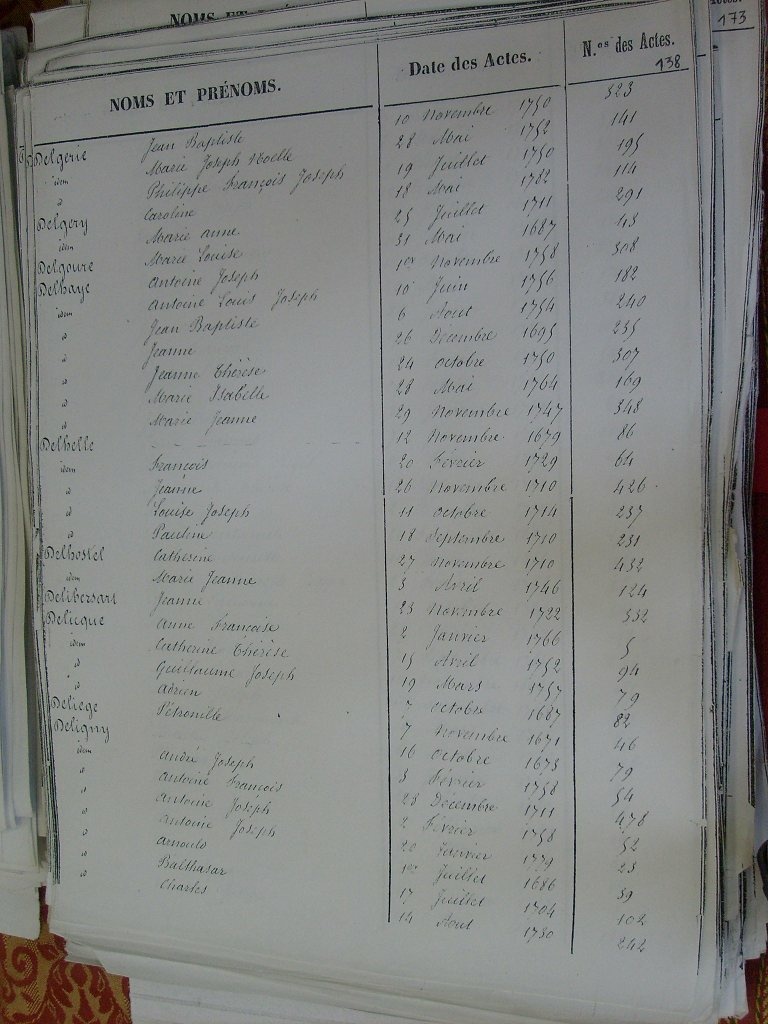 NOMS ET
173
NOMS ET PRÉNOMS. Date des Actes. N.os des Actes.
138
Delgerie Jean Baptiste 10 Novembre 1750 323
idem Marie Joseph Noelle 28 Mai 1752 141
d Philippe François Joseph 19 Juillet 1750 195
Delgery Caroline 18 Mai 1782 114
idem Marie Anne 25 Juillet 1711 291
Delgoure Marie Louise 31 Mai 1687 43
Delhaye Antoine Joseph 1er Novembre 1758 308
idem Antoine Louis Joseph 10 Juin 1756 182
d Jean Baptiste 6 Aout 1754 240
d Jeanne 26 Décembre 1695 235
d Jeanne Thérèse 24 Octobre 1750 307
d Marie Isabelle 28 Mai 1764 169
d Marie Jeanne 29 Novembre 1747 348
Delhelle 12 Novembre 1679 86
idem François 20 Février 1729 64
d Jeanne 26 Novembre 1710 426
d Louise Joseph 11 Octobre 1714 237
d Pauline 18 Septembre 1710 231
Delhostel Catherine 27 Novembre 1710 432
idem Marie Jeanne 3 Avril 1746 124
Delibersart Jeanne 23 Novembre 1722 332
Delicque Anne Françoise 2 Janvier 1766 5
idem Catherine Thérèse 15 Avril 1752 94
d Guillaume Joseph 19 Mars 1757 79
d Adrien 7 Octobre 1687 82
Deliege Pétronille 7 Novembre 1671 46
Deligny 16 Octobre 1673 79
idem André Joseph 3 Février 1758 54
d Antoine François 28 Décembre 1711 478
d Antoine Joseph 2 Février 1758 52
d Antoine Joseph 20 Janvier 1779 23
d Arnould 1er Juillet 1686 39
d Balthasar 17 Juillet 1704 102
d Charles 14 Aout 1730 242